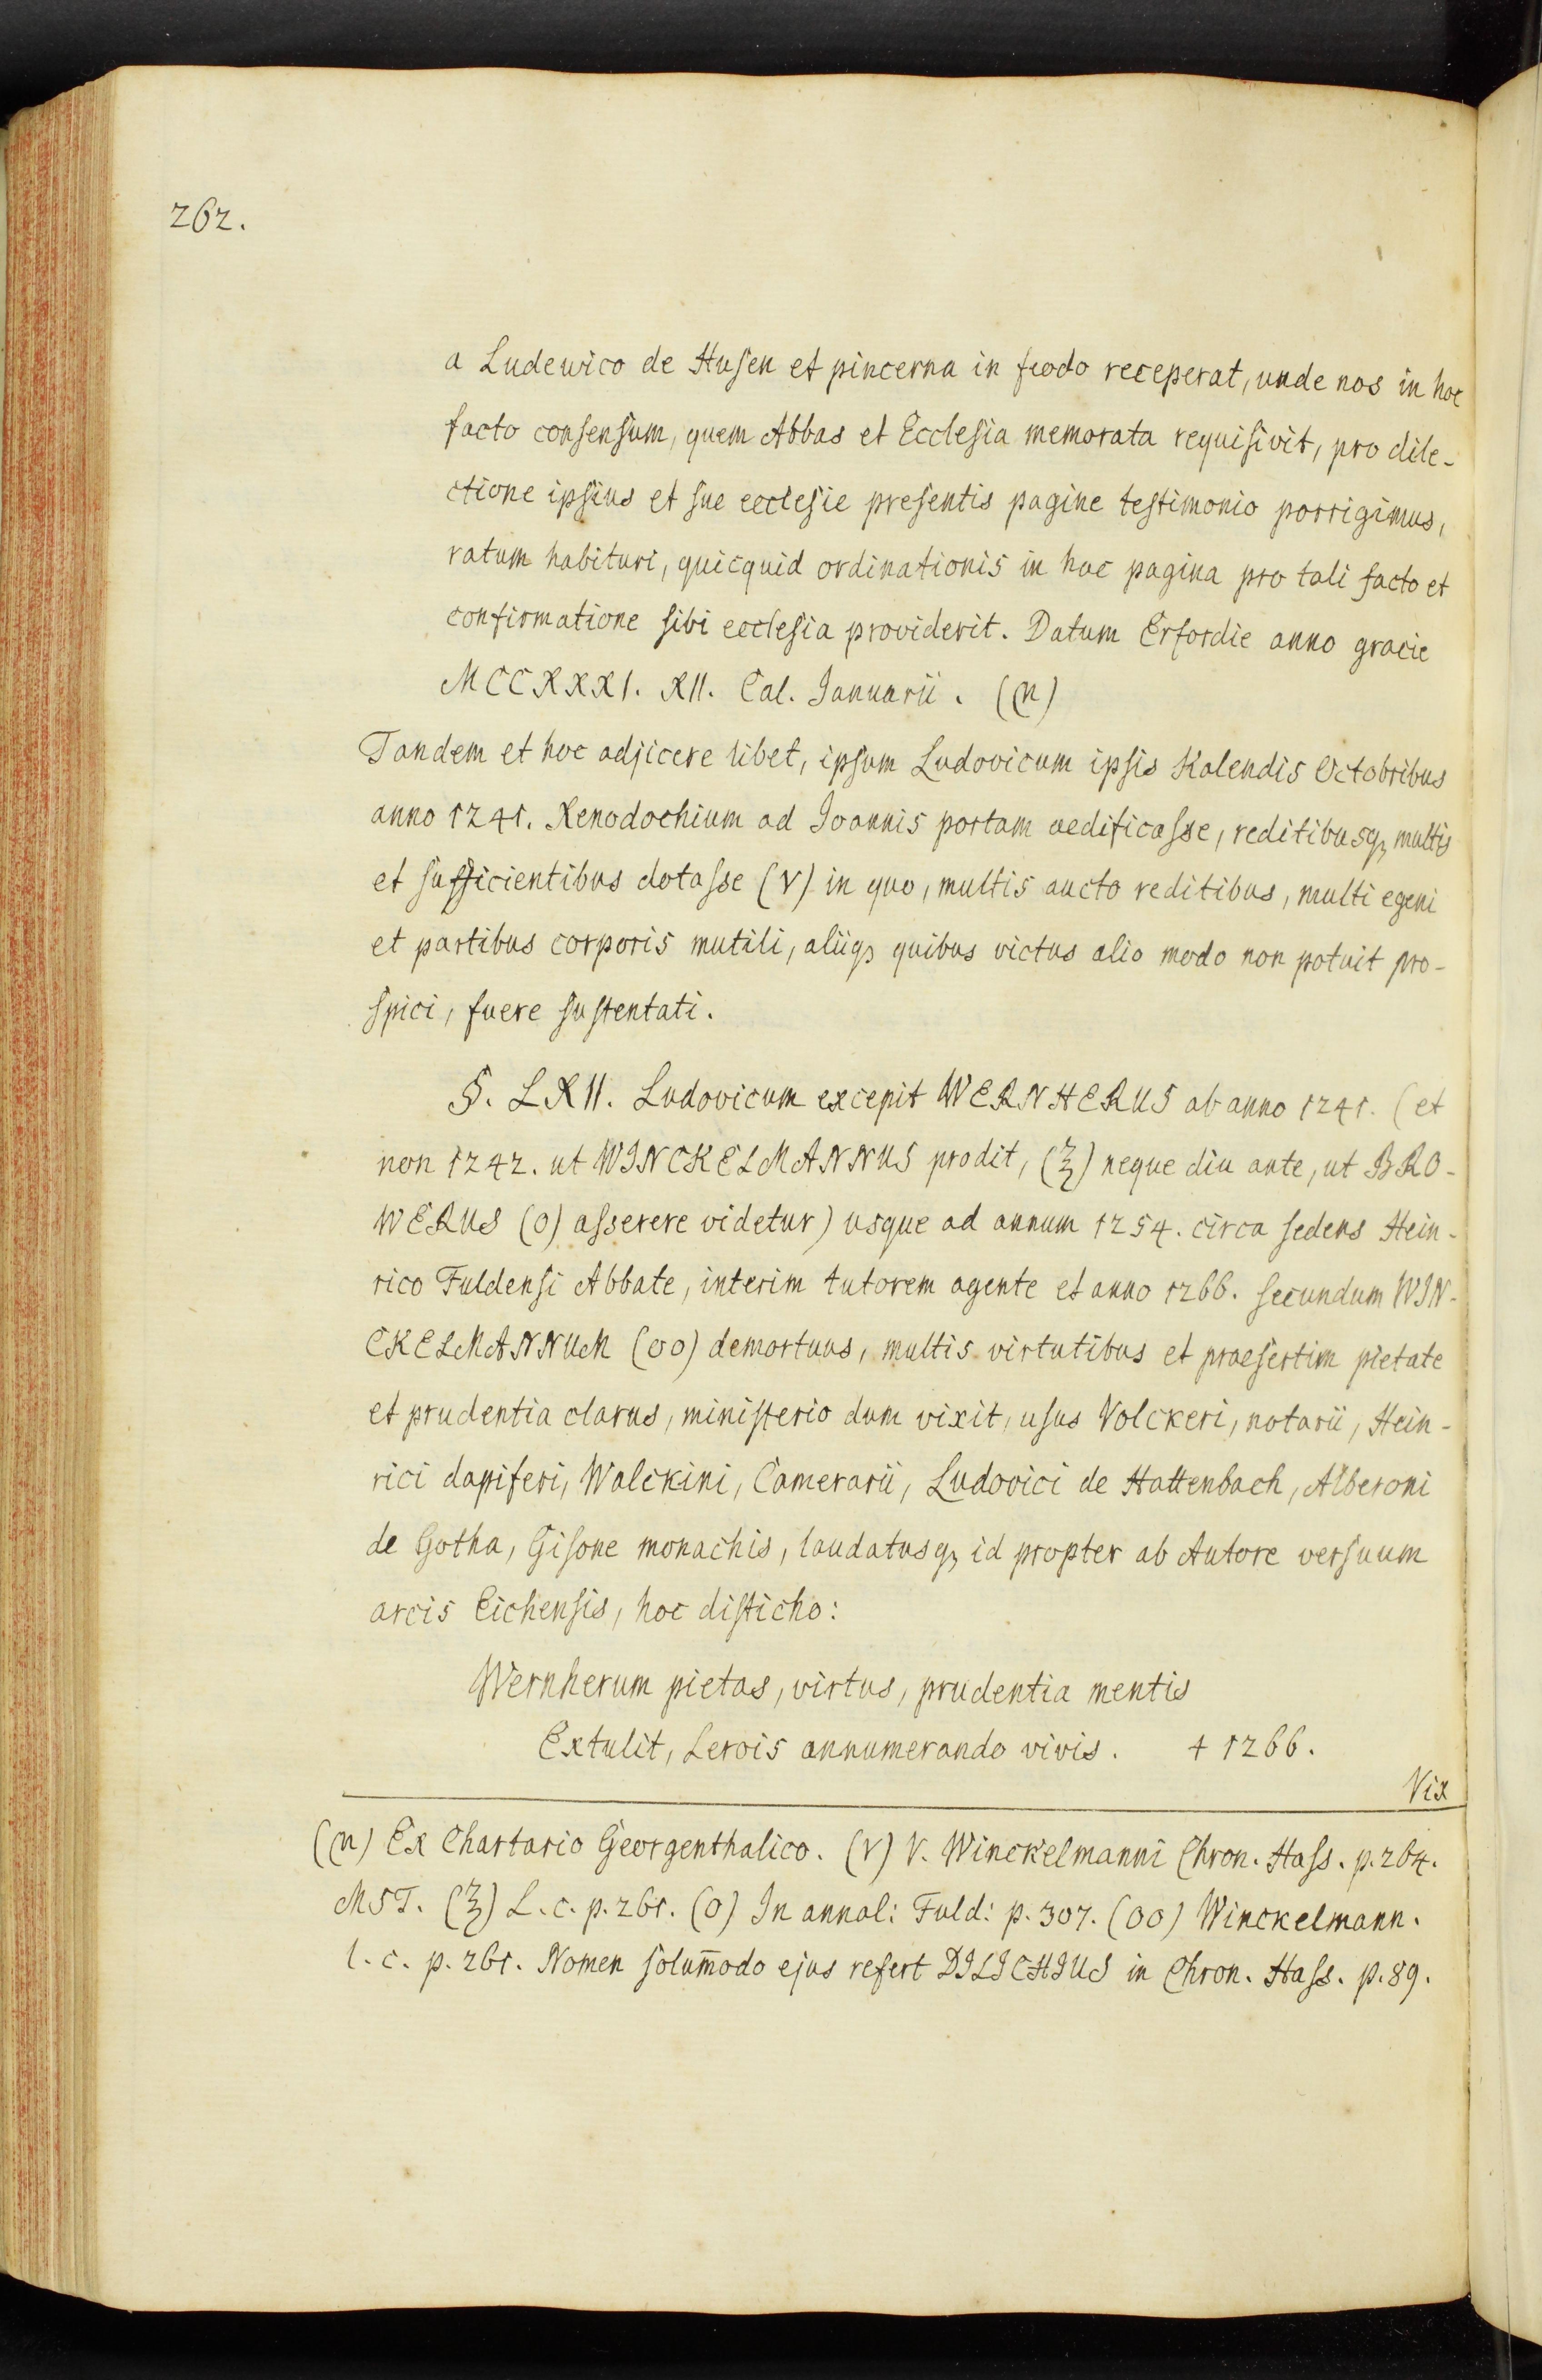 262.
a Ludewico de Husen et pincerna in feodo receperat, unde nos in hoc
facto consensum, quem Abbas et Ecclesia memorata requisivit, pro dile-
ctione ipsius et sue ecclesie presentis pagine testimonio porrigimus,
ratum habituri, quicquid ordinationis in hac pagina pro tali facto et
confirmatione sibi ecclesia providerit. Datum Erfordie anno gracie
MCCXXXI. XII. Cal. Januarii. (m)
Tandem et hoc adjicere libet, ipsum Ludovicum ipsis Kalendis Octobribus
anno 1241. Xenodochium ad Joannis portam aedificasse, reditibusq3 multis
et sufficientibus dotasse (ν) in quo, multis aucto reditibus, multi egeni
et partibus corporis mutili, aliiq3 quibus victus alio modo non potuit pro-
spici, fuere sustentati.
§. LXII. Ludovicum excepit WERNHERUS ab anno 1241. (et
non 1242. ut WINCKELMANNUS prodit, (ξ) neque diu ante, ut BRO-
WERUS (o) asserere videtur) usque ad annum 1254. circa sedens Hein-
rico Fuldensi Abbate, interim tutorem agente et anno 1266. secundum WIN-
CKELMANNUM (oo) demortuus, multis virtutibus et praesertim pietate
et prudentia clarus, ministerio dum vixit, usus Volckeri, notarii, Hein-
rici dapiferi, Walckini, Camerarii, Ludovici de Hattenbach, Alberoni
de Gotha, Gisone monachis, laudatusq3 id propter ab Autore versuum
arcis Eichensis, hoc disticho:
Wernherum pietas, virtus, prudentia mentis
Extulit, Lerois annumerando vivis. † 1266.
Vix
(m) Ex Chartario Georgenthalico. (ν) V. Winckelmanni Chron. Hass. p. 264.
MST. (ξ) L. c. p. 261. (o) In annal: Fuld: p. 307. (oo) Winckelmann.
l. c. p. 261. Nomen solum̄odo ejus refert DILICHIUS in Chron. Hass. p. 89.